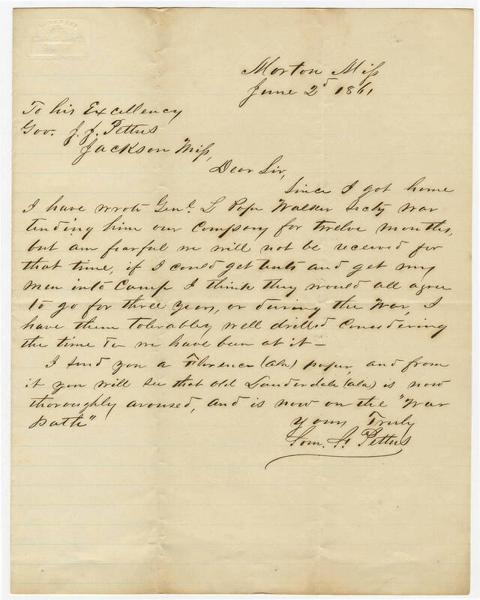 Morton Miss
June 2d 1861
To his Excellency
Gov. J. J. Pettus
Jackson Miss,
Dear Sir,
Since I got home
I have wrote Genl. L Pope Walker Secty War
tending him our Company for twelve months,
but am fearful we will not be received for
that time, if I could get tents and get my
men into Camp I think they would all agree
to go for three years, or during the War, I
have them tolerably well drilled Considering
the time we have been at it —
I send you a Florence (Ala) paper, and from
it you will see that old Lauderdale (Ala) is now
thoroughly aroused, and is now on the "War
path"
Yours Truly
Pettus